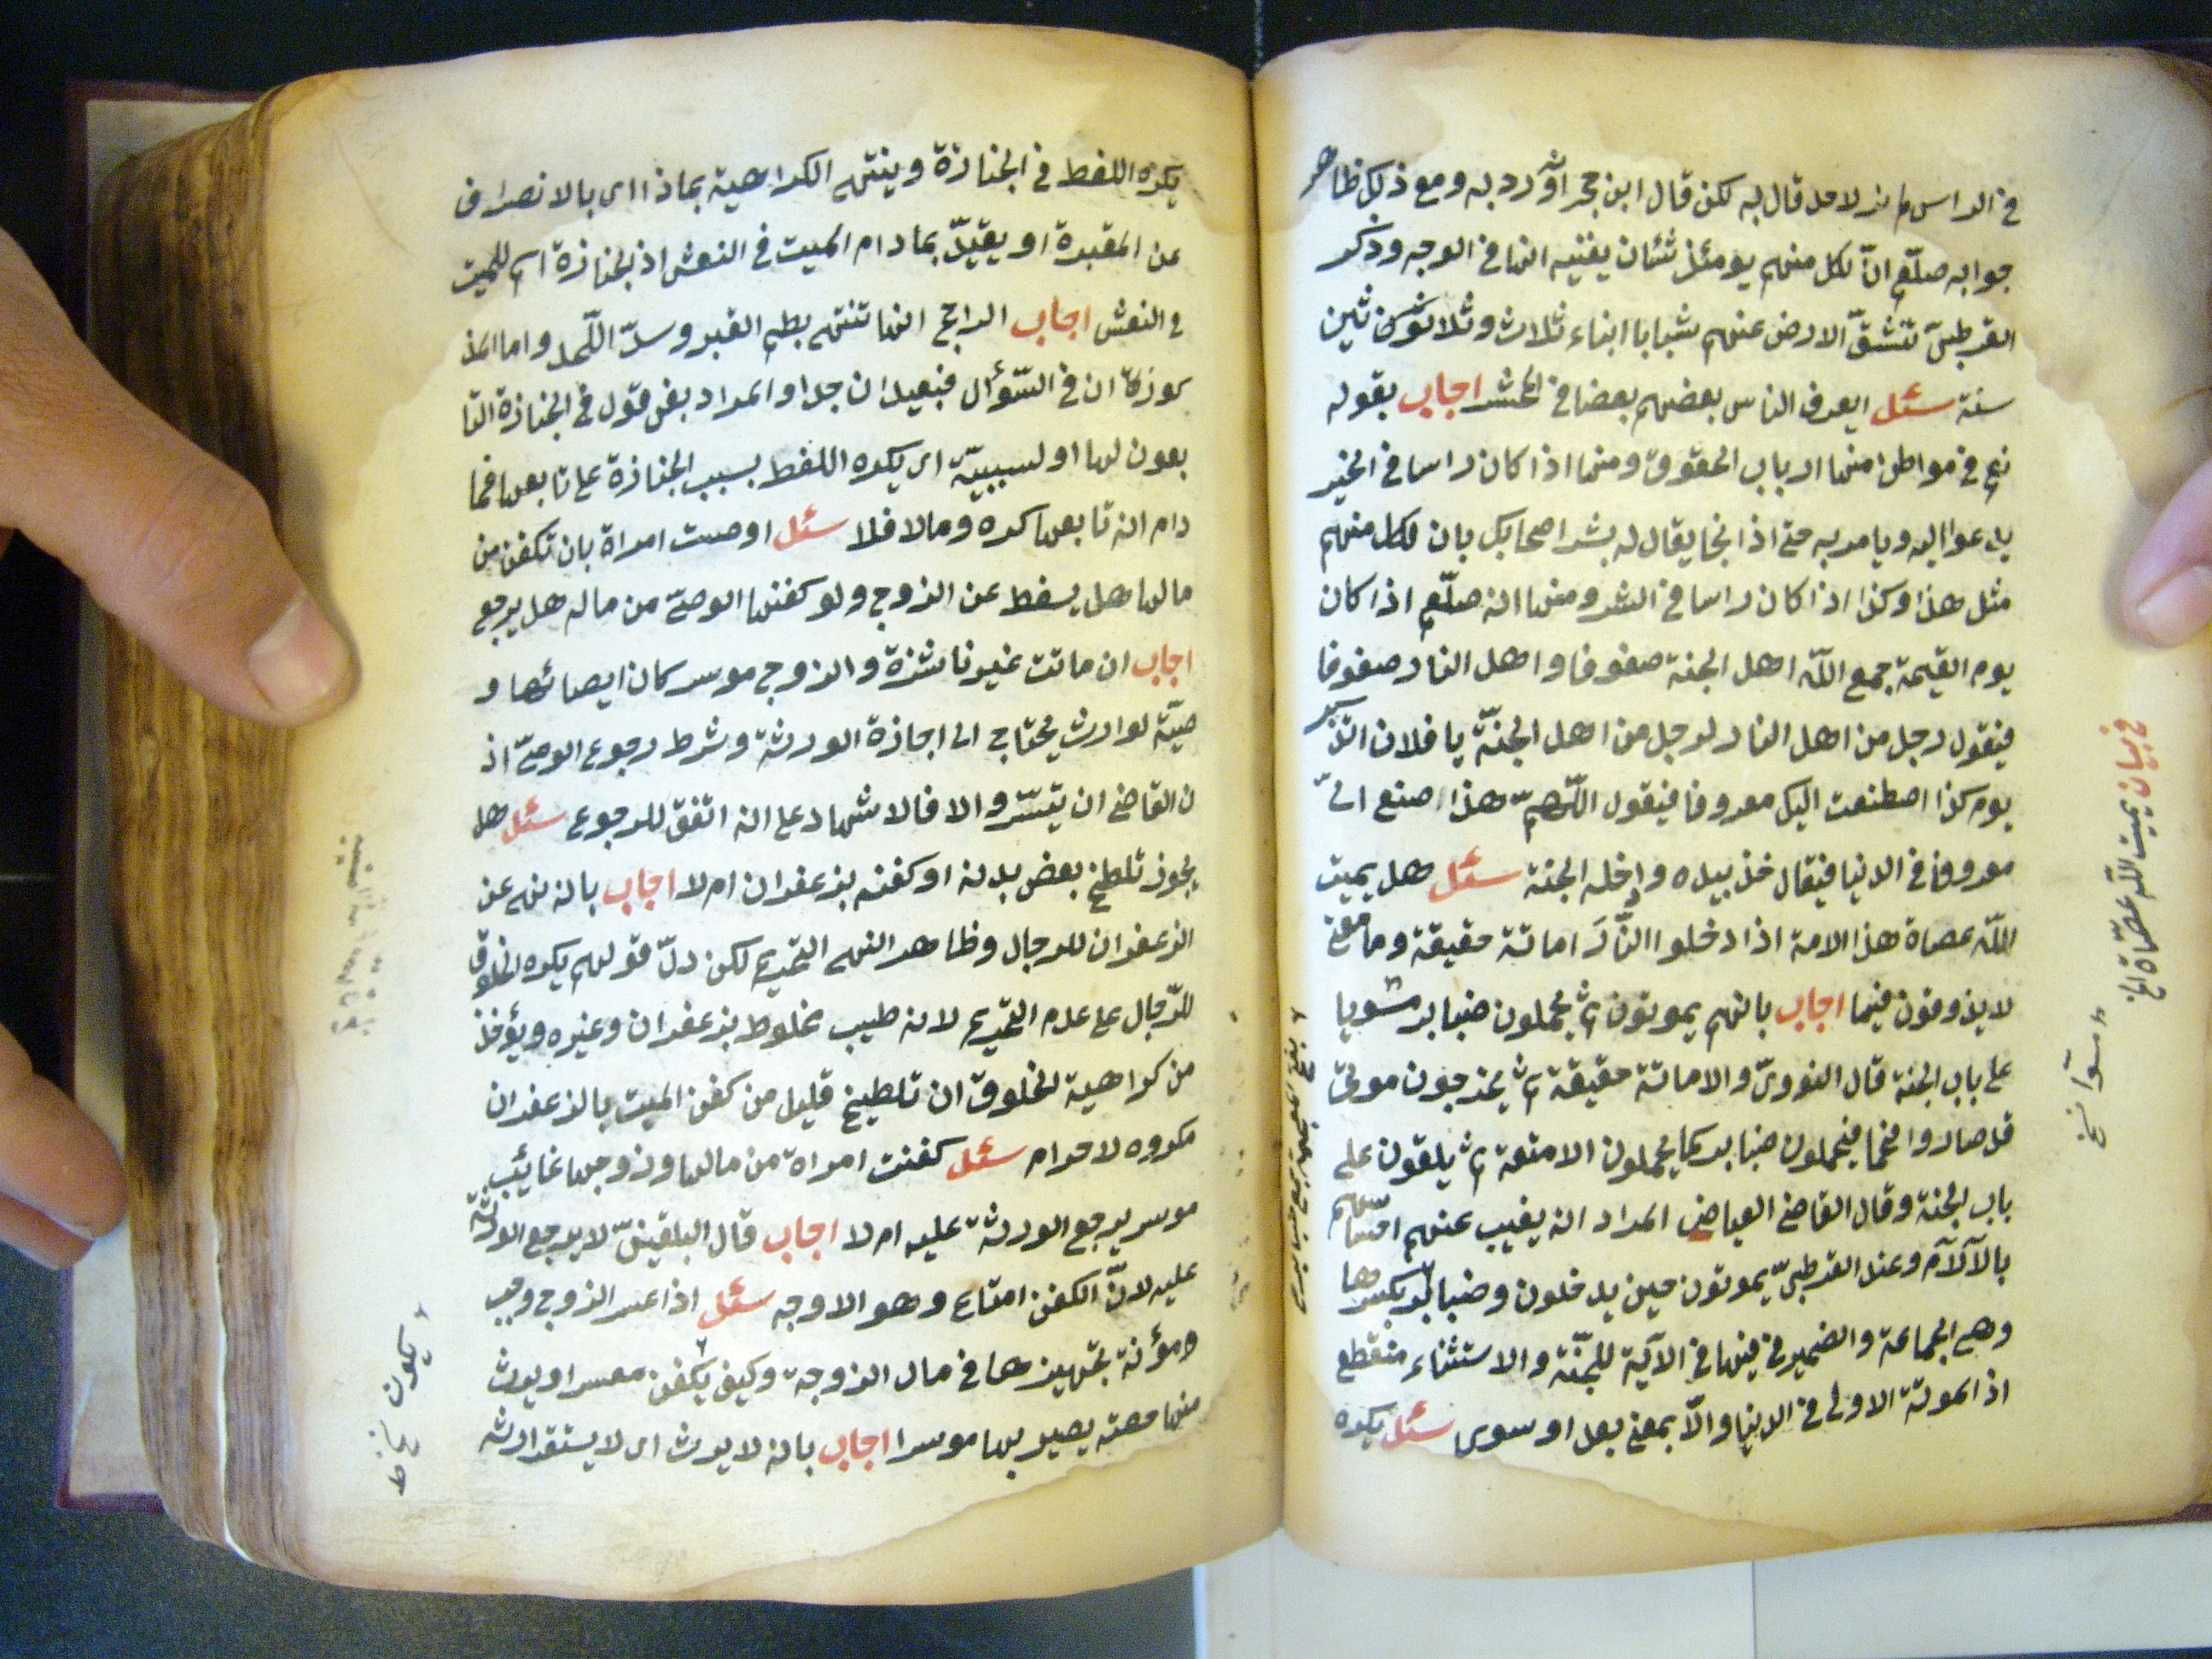 في الراس لم نر لاحد قال به لكن قال ابن حجر اورد به ومع ذلك ظاهر
جوابه صلعم ان لكل منهم يومئذ شئان يغنيه انها في الوجه وذكر
القرطبي تنشق الارض عنهم شبابا ابناء ثلاث وثلاثين
سنة سئل ايعرف الناس بعضهم بعضا في المحشر اجاب بقوله
نعم في مواطن منها ارباب الحقوق ومنها اذا كان راسا في الخير
يدعوا اليه ويامر به حتى اذا نجا يقال له بشر اصحابك بان لكل منهم
مثل هذا وكذا اذا كان راسا في الشر ومنها انه صلعم اذا كان
يوم القيمة جمع الله اهل الجنة صفوفا واهل النار صفوفا
فيقول رجل من اهل النار لرجل من اهل الجنة يا فلان اتذكر
يوم كذا اصطنعت اليك معروفا فيقول اللهم هذا اصنع الي
معروفا في الدنيا فيقال خذ بيده وادخله الجنة سئل هل يميت
الله عصاة هذا الامة اذا دخلوا النار اماتة حقيقة وما معنى
لا يذوقون فيها اجاب بانهم يموتون ثم يحملون ضبابر مشويا
على باب الجنة قال النووي والاماتة حقيقة ثم يخرجون موتى
قد صاروا فحما فيحملون ضبابر كما يحملون الامتعة ثم يلقون على
باب الجنة وقال القاضي العياض المراد انه يغيب عنهم احساسهم
بالآلآم وعند القرطبي يموتون حين يدخلون وضبابر بكسرها
وهي الجماعة والضمير في فيها في الآية للجنة والاستثناء منقطع
اذ الموتة الاولى في الدنيا والا بمعنى بعد او سوى سئل يكره
في بيان يميت الله عصاة الخ
يكره اللغط في الجنازة وينتهي الكراهية بماذا اى بالانصراف
عن المقبرة او يقيد بما دام الميت في النعش اذ الجنازة اسم للميت
في النعش اجاب الراجح انها تنتهي بطم القبر وسد اللحد واما المذ
كوزكان في السؤال فبعيدان جدا والمراد بفى قول في الجنازة التا
بعون لها او لسببية اى يكره اللغط بسبب الجنازة على تابعها فما
دام انه تابعها كره ومالا فلا سئل اوصت امراة بان تكفن من
مالها هل يسقط عن الزوج ولو كفنها الوصي من ماله هل يرجع
اجاب ان ماتت غير ناشزة والزوج موسر كان ايصائها و
صية لوارث يحتاج الى اجازة الورثة وشرط رجوع الوصي اذ
ن القاضي ان تيسر والا فالاشهاد على انه اتفق للرجوع سئل هل
يجوز تلطيخ بعض بدنه او كفنه بزعفران ام لا اجاب بانه نهى عن
الزعفران للرجال وظاهر النهي التحريم لكن دل قولهم يكره الخلوق
للرجال على عدم التحريم لانه طيب مخلوط بزعفران وغيره ويؤخذ
من كراهية الخلوق ان تلطيخ قليل من كفن الميت بالزعفران
مكروه لا حرام سئل كفنت امراة من مالها وزوجها غائب
موسر يرجع الورثة عليه ام لا اجاب قال البلقيني لا يرجع الورثة
عليه لان الكفن امتاع وهو الاوجه سئل اذا عسر الزوج وجب
ومؤنة تجهيزها في مال الزوجة وكيف يكفن معسرا ويرث
منها حصته يصير بها موسرا اجاب بانه لا يرث اى لا يستقر ارثه
يكون نخط